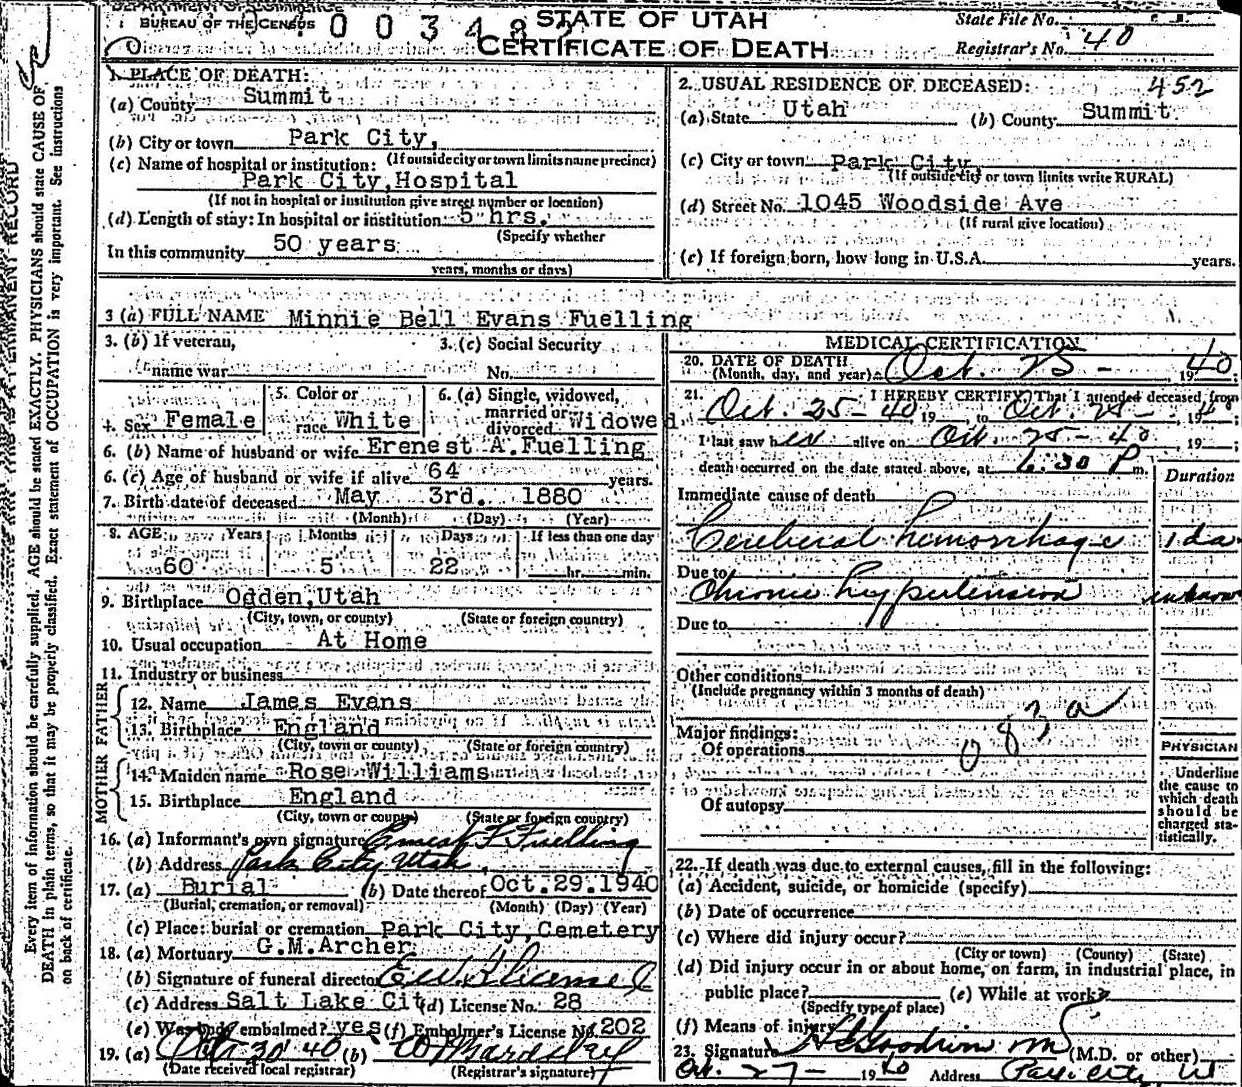 BUREAU OF THE CENSUS
STATE OF UTAH
CERTIFICATE OF DEATH
State File No.
Registrar's No. 40
1. PLACE OF DEATH:
(a) County Summit
(b) City or town Park City,
(c) Name of hospital or institution: (If outside city or town limits name precinct)
Park City,Hospital
(If not in hospital or institution give street number or location)
(d) Length of stay: In hospital or institution 5 hrs.
(Specify whether
In this community 50 years
years, months or days)
2. USUAL RESIDENCE OF DECEASED: 452
(a) State Utah (b) County Summit
(c) City or town Park City
(If outside city or town limits write RURAL)
(d) Street No. 1045 Woodside Ave
(If rural give location)
(e) If foreign born, how long in U.S.A. years.
3 (a) FULL NAME Minnie Bell Evans Fuelling
3. (b) If veteran, 3. (c) Social Security
name war No.
4. Sex Female 5. Color or race White 6. (a) Single, widowed, married or divorced Widowed
6. (b) Name of husband or wife Erenest A.Fuelling
6. (c) Age of husband or wife if alive 64 years.
7. Birth date of deceased May 3rd. 1880
(Month) (Day) (Year)
8. AGE Years Months Days If less than one day
60 5 22 hr. min.
9. Birthplace Ogden,Utah
(City, town, or county) (State or foreign country)
10. Usual occupation At Home
11. Industry or business
FATHER
12. Name James Evans
13. Birthplace England
(City, town or county) (State or foreign country)
MOTHER
14. Maiden name Rose Williams
15. Birthplace England
(City, town or county) (State or foreign country)
16. (a) Informant's own signature Ernest F Fuelling
(b) Address Park City Utah
17. (a) Burial (b) Date thereof Oct.29.1940
(Burial, cremation, or removal) (Month) (Day) (Year)
(c) Place: burial or cremation Park City,Cemetery
18. (a) Mortuary G.M.Archer
(b) Signature of funeral director
(c) Address Salt Lake Cit (d) License No. 28
(e) Was body embalmed? yes (f) Embalmer's License No. 202
19. (a) Oct 30 40 (b)
(Date received local registrar) (Registrar's signature)
MEDICAL CERTIFICATION
20. DATE OF DEATH
(Month, day, and year) Oct. 25 - , 1940;
21. I HEREBY CERTIFY, That I attended deceased from
Oct. 25-40, 19 to Oct. 25-, 1940
I last saw her alive on Oct. 25-40 19 ;
death occurred on the date stated above, at 6:30 P m.
Duration
Immediate cause of death
Cerebral hemorrhage 1 da
Due to
Chronic hypertension unknown
Due to
Other conditions
(Include pregnancy within 3 months of death)
083a
Major findings:
Of operations
Of autopsy
PHYSICIAN
Underline
the cause to
which death
should be
charged sta-
tistically.
22. If death was due to external causes, fill in the following:
(a) Accident, suicide, or homicide (specify)
(b) Date of occurrence
(c) Where did injury occur?
(City or town) (County) (State)
(d) Did injury occur in or about home, on farm, in industrial place, in
public place? (e) While at work?
(Specify type of place)
(f) Means of injury
23. Signature (M.D. or other)
Oct. 27- 1940 Address Park City Ut
Every item of information should be carefully supplied. AGE should be stated EXACTLY. PHYSICIANS should state CAUSE OF
DEATH in plain terms, so that it may be properly classified. Exact statement of OCCUPATION is very important. See instructions
on back of certificate.